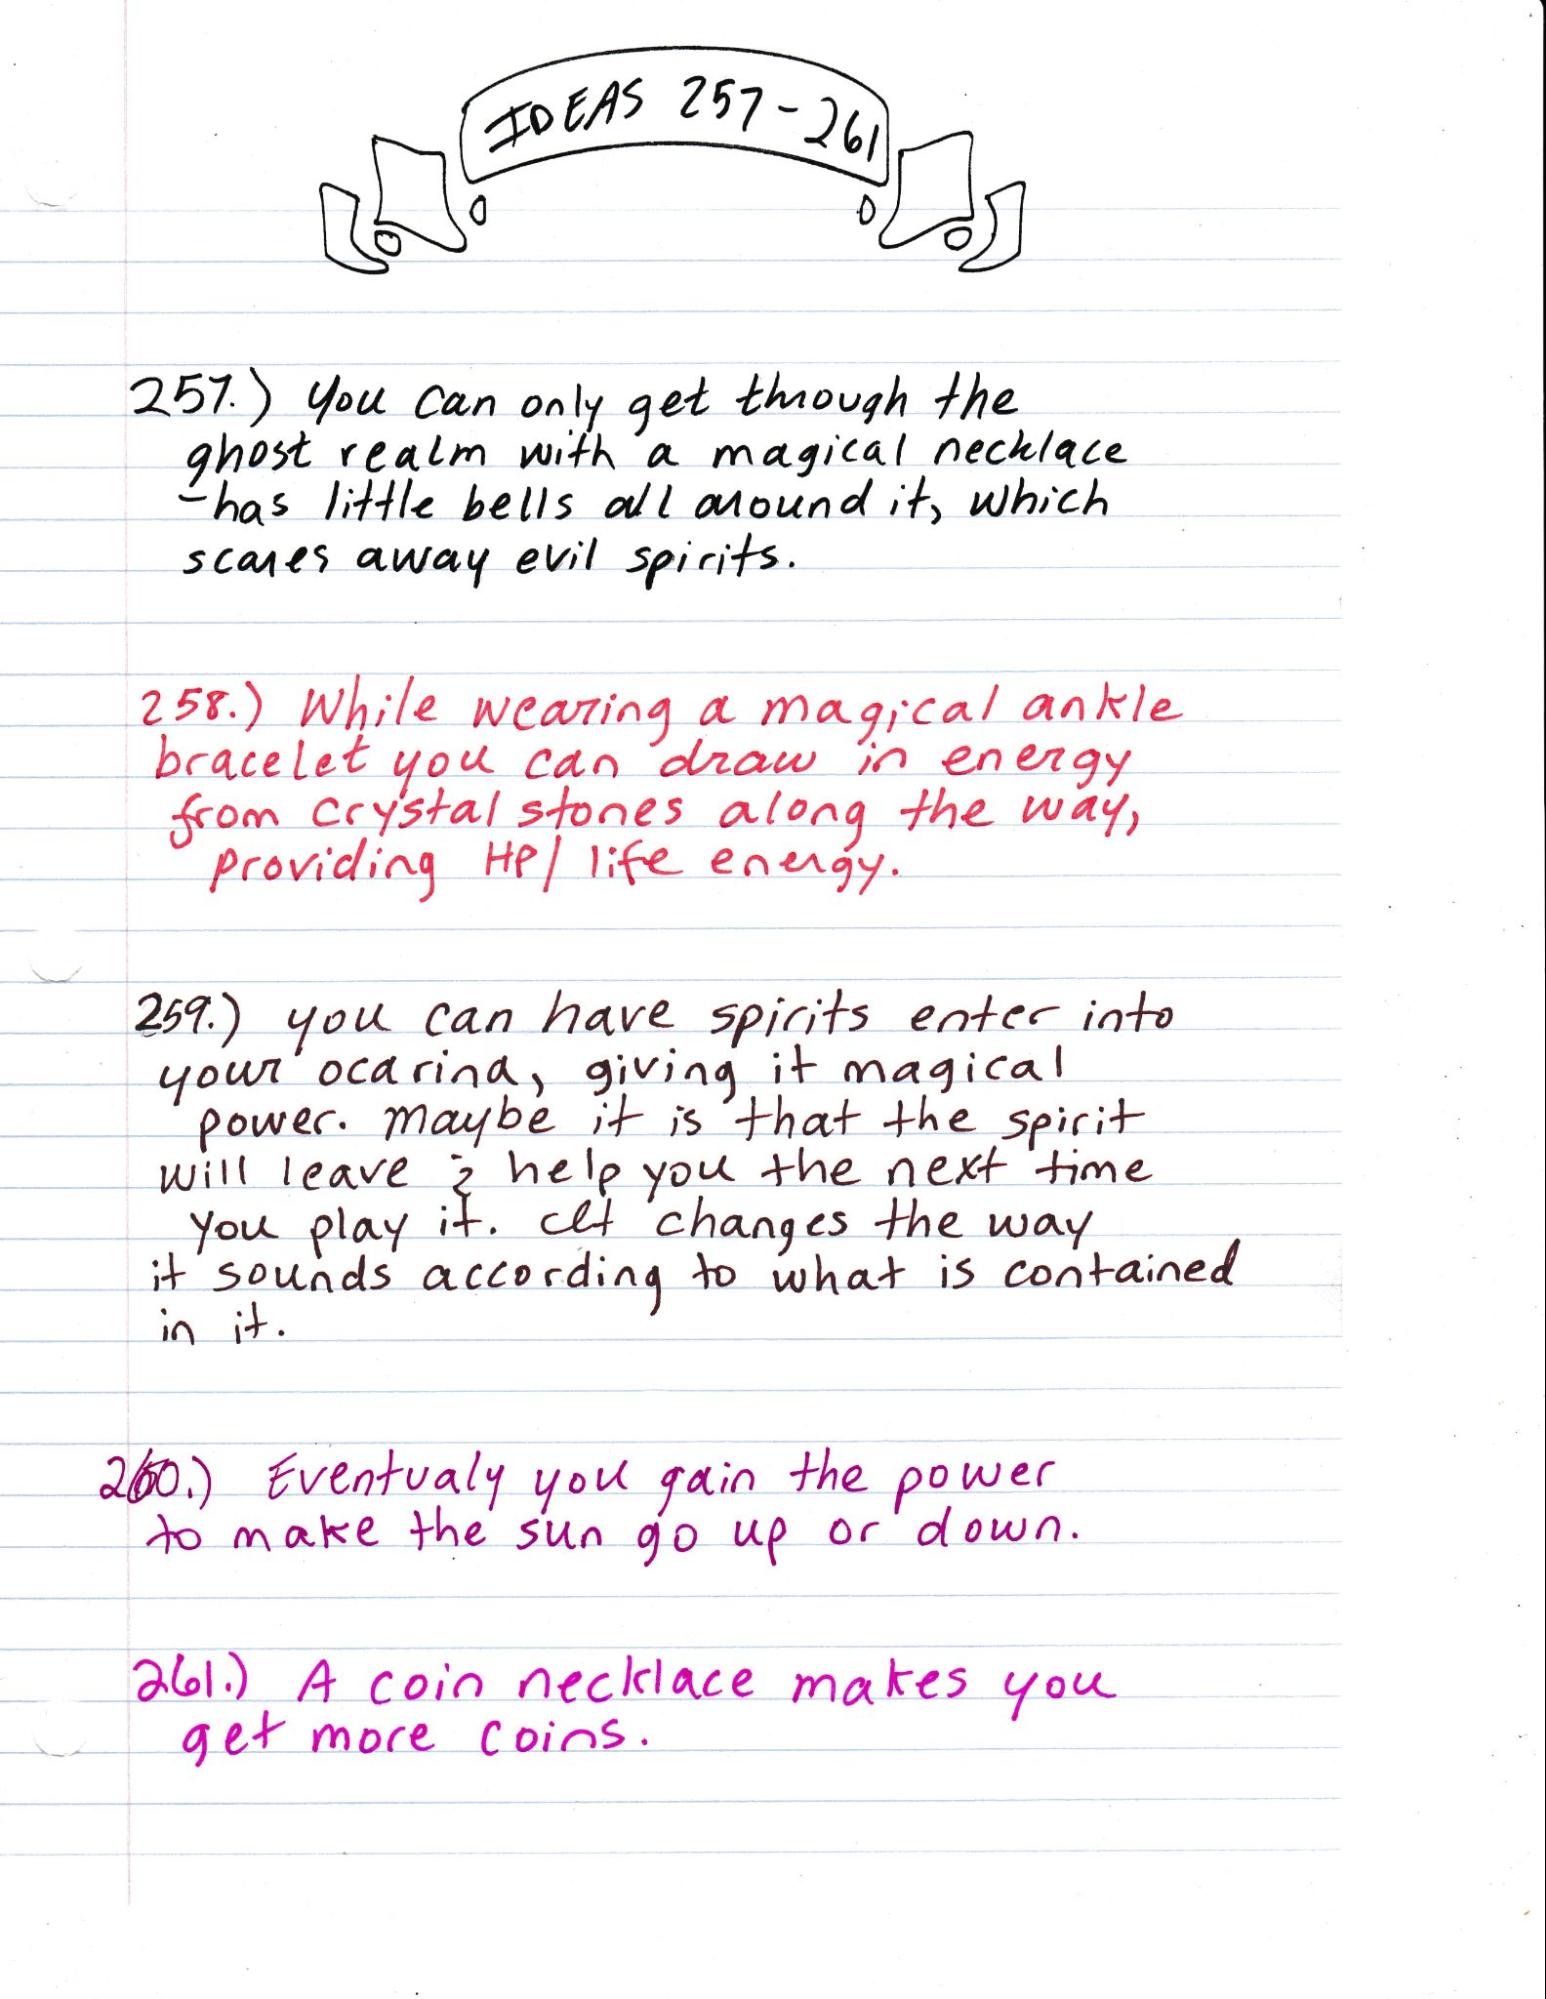 IDEAS 257-261
257.) you can only get through the
ghost realm with a magical necklace
-has little bells all around it, which
scares away evil spirits.
258.) While wearing a magical ankle
bracelet you can draw in energy
from crystal stones along the way,
providing HP/ life energy.
259.) you can have spirits enter into
your ocarina, giving it magical
power. Maybe it is that the spirit
will leave & help you the next time
you play it. It changes the way
it sounds according to what is contained
in it.
260.) Eventualy you gain the power
to make the sun go up or down.
261.) A coin necklace makes you
get more coins.